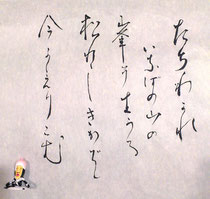 たちわかれ
いなばの山の
峯に生ふる
松としきかば
今かへりこむ